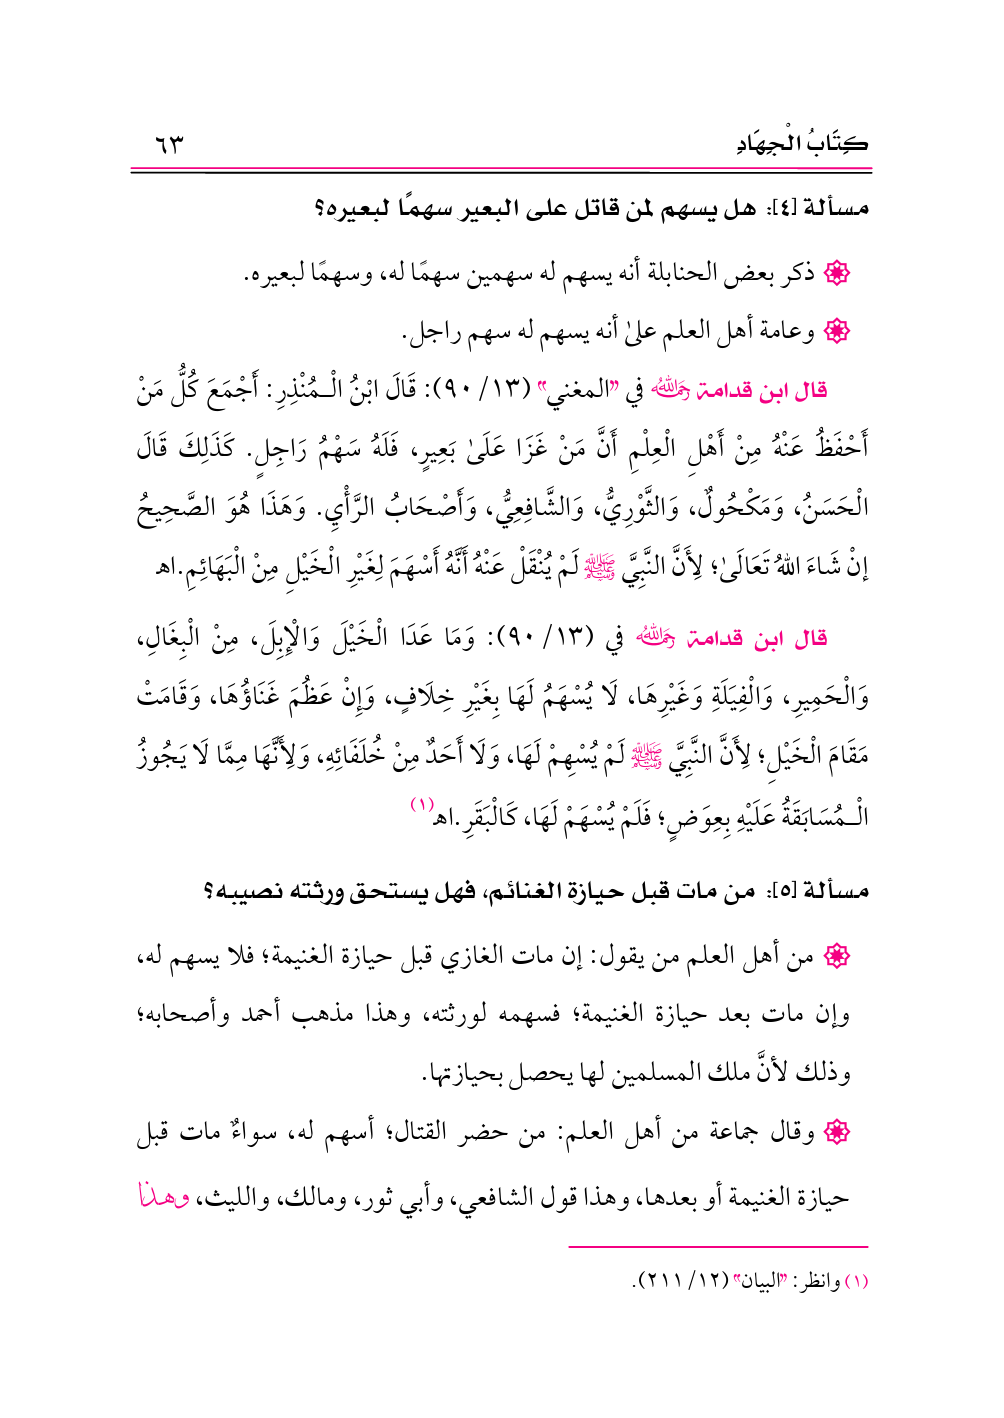 كِتَابُ الْجِهَادِ ٦٣
مسألة [٤]: هل يسهم لمن قاتل على البعير سهمًا لبعيره؟
ذكر بعض الحنابلة أنه يسهم له سهمين سهمًا له، وسهمًا لبعيره.
وعامة أهل العلم علىٰ أنه يسهم له سهم راجل.
قال ابن قدامة رحمه الله في "المغني" (١٣/ ٩٠): قَالَ ابْنُ الْـمُنْذِرِ: أَجْمَعَ كُلُّ مَنْ
أَحْفَظُ عَنْهُ مِنْ أَهْلِ الْعِلْمِ أَنَّ مَنْ غَزَا عَلَىٰ بَعِيرٍ، فَلَهُ سَهْمُ رَاجِلٍ. كَذَلِكَ قَالَ
الْحَسَنُ، وَمَكْحُولٌ، وَالثَّوْرِيُّ، وَالشَّافِعِيُّ، وَأَصْحَابُ الرَّأْيِ. وَهَذَا هُوَ الصَّحِيحُ
إنْ شَاءَ اللهُ تَعَالَىٰ؛ لِأَنَّ النَّبِيَّ ﷺ لَمْ يُنْقَلْ عَنْهُ أَنَّهُ أَسْهَمَ لِغَيْرِ الْخَيْلِ مِنْ الْبَهَائِمِ.اهـ
قال ابن قدامة رحمه الله في (١٣/ ٩٠): وَمَا عَدَا الْخَيْلَ وَالْإِبِلَ، مِنْ الْبِغَالِ،
وَالْحَمِيرِ، وَالْفِيَلَةِ وَغَيْرِهَا، لَا يُسْهَمُ لَهَا بِغَيْرِ خِلَافٍ، وَإِنْ عَظُمَ غَنَاؤُهَا، وَقَامَتْ
مَقَامَ الْخَيْلِ؛ لِأَنَّ النَّبِيَّ ﷺ لَمْ يُسْهِمْ لَهَا، وَلَا أَحَدٌ مِنْ خُلَفَائِهِ، وَلِأَنَّهَا مِمَّا لَا يَجُوزُ
الْـمُسَابَقَةُ عَلَيْهِ بِعِوَضٍ؛ فَلَمْ يُسْهَمْ لَهَا، كَالْبَقَرِ.اهـ(١)
مسألة [٥]: من مات قبل حيازة الغنائم، فهل يستحق ورثته نصيبه؟
من أهل العلم من يقول: إن مات الغازي قبل حيازة الغنيمة؛ فلا يسهم له،
وإن مات بعد حيازة الغنيمة؛ فسهمه لورثته، وهذا مذهب أحمد وأصحابه؛
وذلك لأنَّ ملك المسلمين لها يحصل بحيازتها.
وقال جماعة من أهل العلم: من حضر القتال؛ أسهم له، سواءٌ مات قبل
حيازة الغنيمة أو بعدها، وهذا قول الشافعي، وأبي ثور، ومالك، والليث، وهذا
(١) وانظر: "البيان" (١٢/ ٢١١).